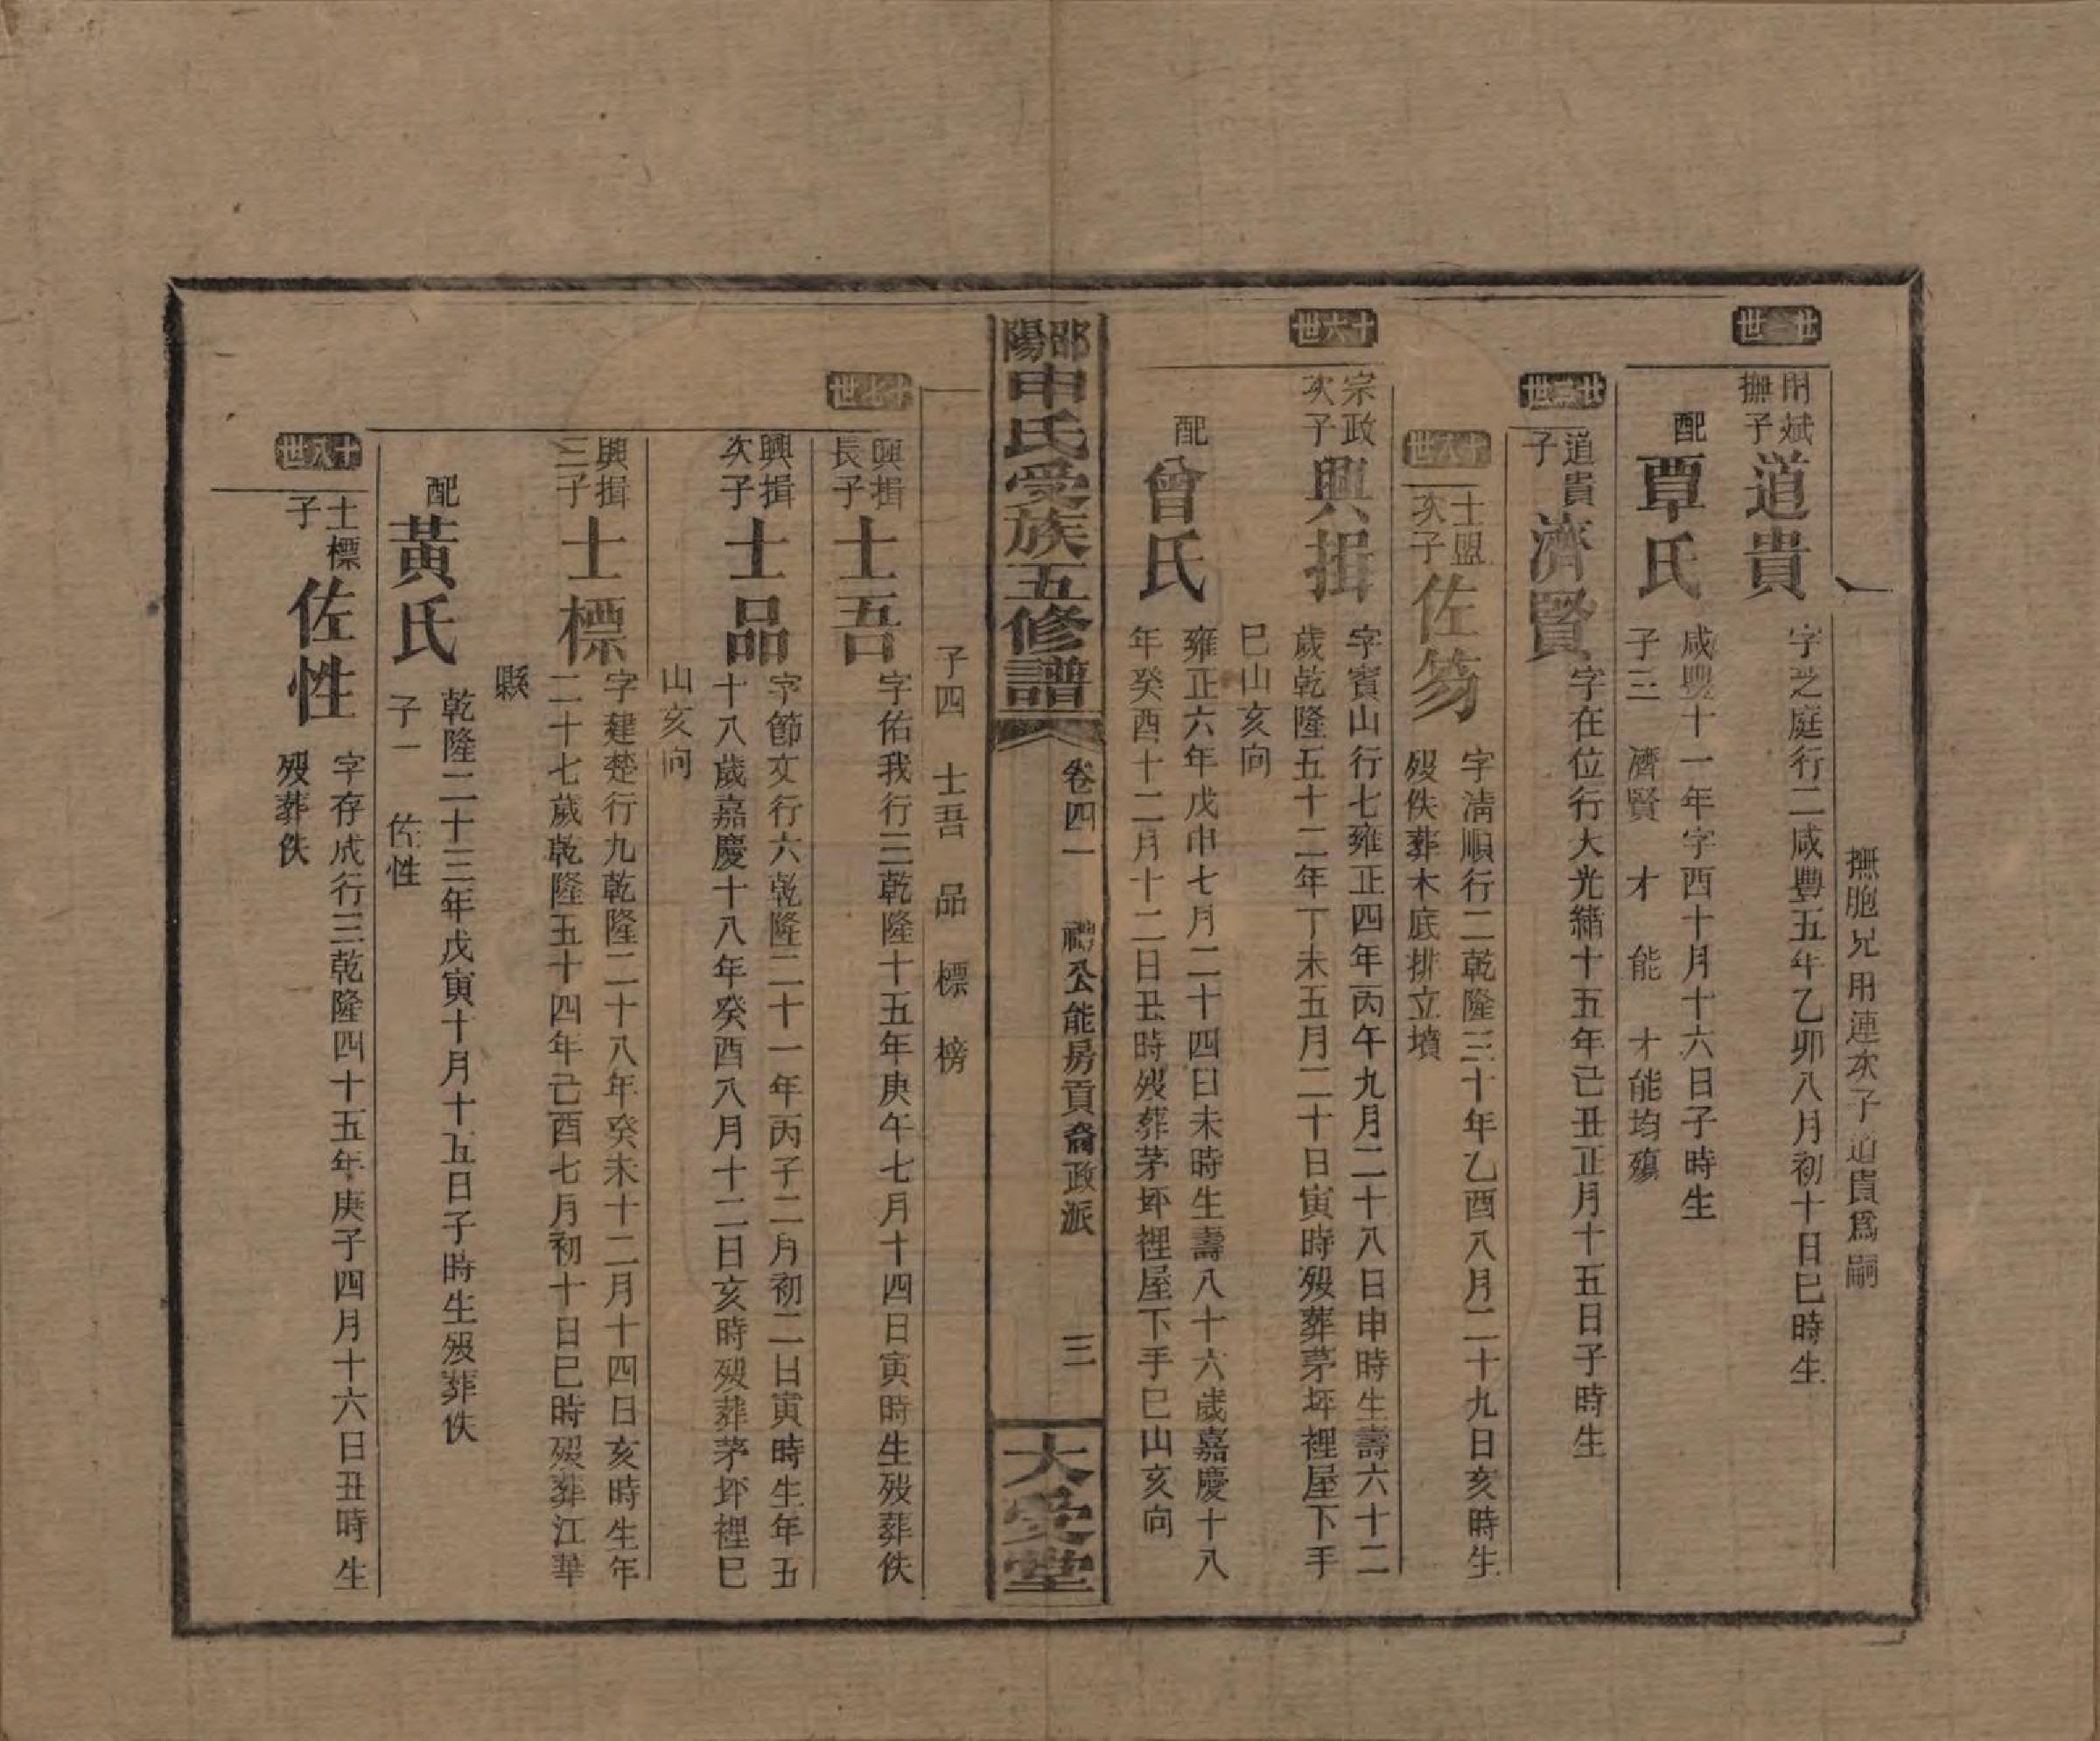 撫胞兄用連次子道貴爲嗣
廿二世
用斌
撫子
道貴
字芝庭行二咸豐五年乙卯八月初十日巳時生
配
覃氏
咸豐十一年字酉十月十六日子時生
子三 濟賢 才 能 才能均殤
廿三世
道貴
子
濟賢
字在位行大光緒十五年己丑正月十五日子時生
十八世
士盟
次子
佐笏
字淸順行二乾隆三十年乙酉八月二十九日亥時生
歿佚葬木底排立墳
十六世
宗政
次子
興揖
字賓山行七雍正四年丙午九月二十八日申時生壽六十二
歲乾隆五十二年丁未五月二十日寅時歿葬茅坪裡屋下手
巳山亥向
配
曾氏
雍正六年戊申七月二十四日未時生壽八十六歲嘉慶十八
年癸酉十二月十二日丑時歿葬茅坪裡屋下手巳山亥向
邵陽申氏受族五修譜
卷四一 禮公能房貢裔政派 三
大受堂
子四 士吾 品 標 榜
十七世
興揖
長子
士吾
字佑我行三乾隆十五年庚午七月十四日寅時生歿葬佚
興揖
次子
士品
字節文行六乾隆二十一年丙子二月初二日寅時生年五
十八歲嘉慶十八年癸酉八月十二日亥時歿葬茅坪裡巳
山亥向
興揖
三子
士標
字建楚行九乾隆二十八年癸未十二月十四日亥時生年
二十七歲乾隆五十四年己酉七月初十日巳時歿葬江華
縣
配
黃氏
乾隆二十三年戊寅十月十五日子時生歿葬佚
子一 佐性
十八世
士標
子
佐性
字存成行三乾隆四十五年庚子四月十六日丑時生
歿葬佚